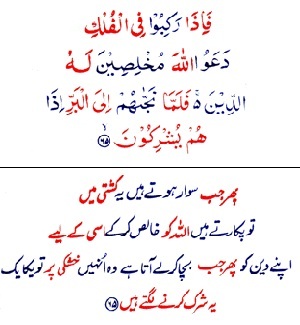 فَاِذَا رَكِبُوْا فِی الْفُلْكِ
دَعَوُا اللّٰهَ مُخْلِصِيْنَ لَهُ
الدِّيْنَ ۚ فَلَمَّا نَجّٰىهُمْ اِلَى الْبَرِّ اِذَا
هُمْ يُشْرِكُوْنَ ۝۶۵
پھر جب سوار ہوتے ہیں یہ کشتی میں
تو پکارتے ہیں اللہ کو خالص کر کے اسی کے لیے
اپنے دین کو پھر جب بچا کر لے آتا ہے وہ انہیں خشکی پر تو یکایک
یہ شرک کرنے لگتے ہیں ۝۶۵